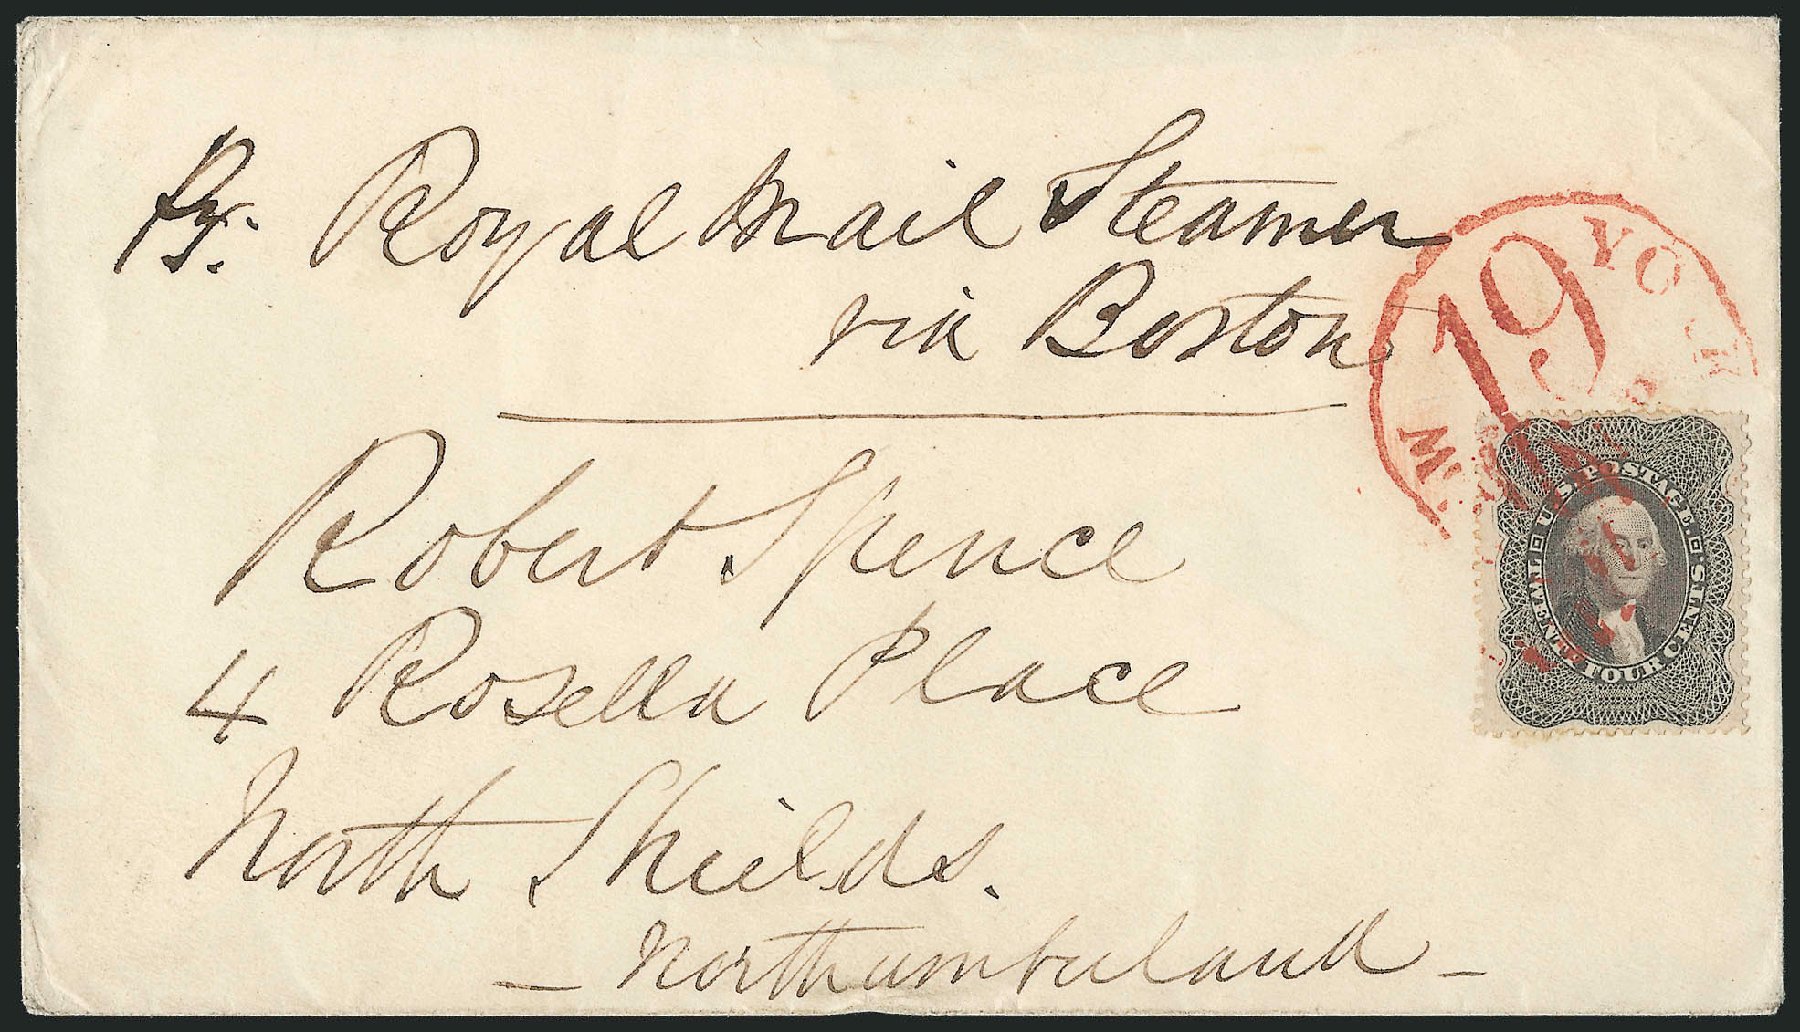 Pr. Royal Mail Steamer
via Boston
Robert Spence
4 Rosella Place
North Shields.
— Northumberland —
YORK
19
U.S. POSTAGE.
TWENTY FOUR CENTS.